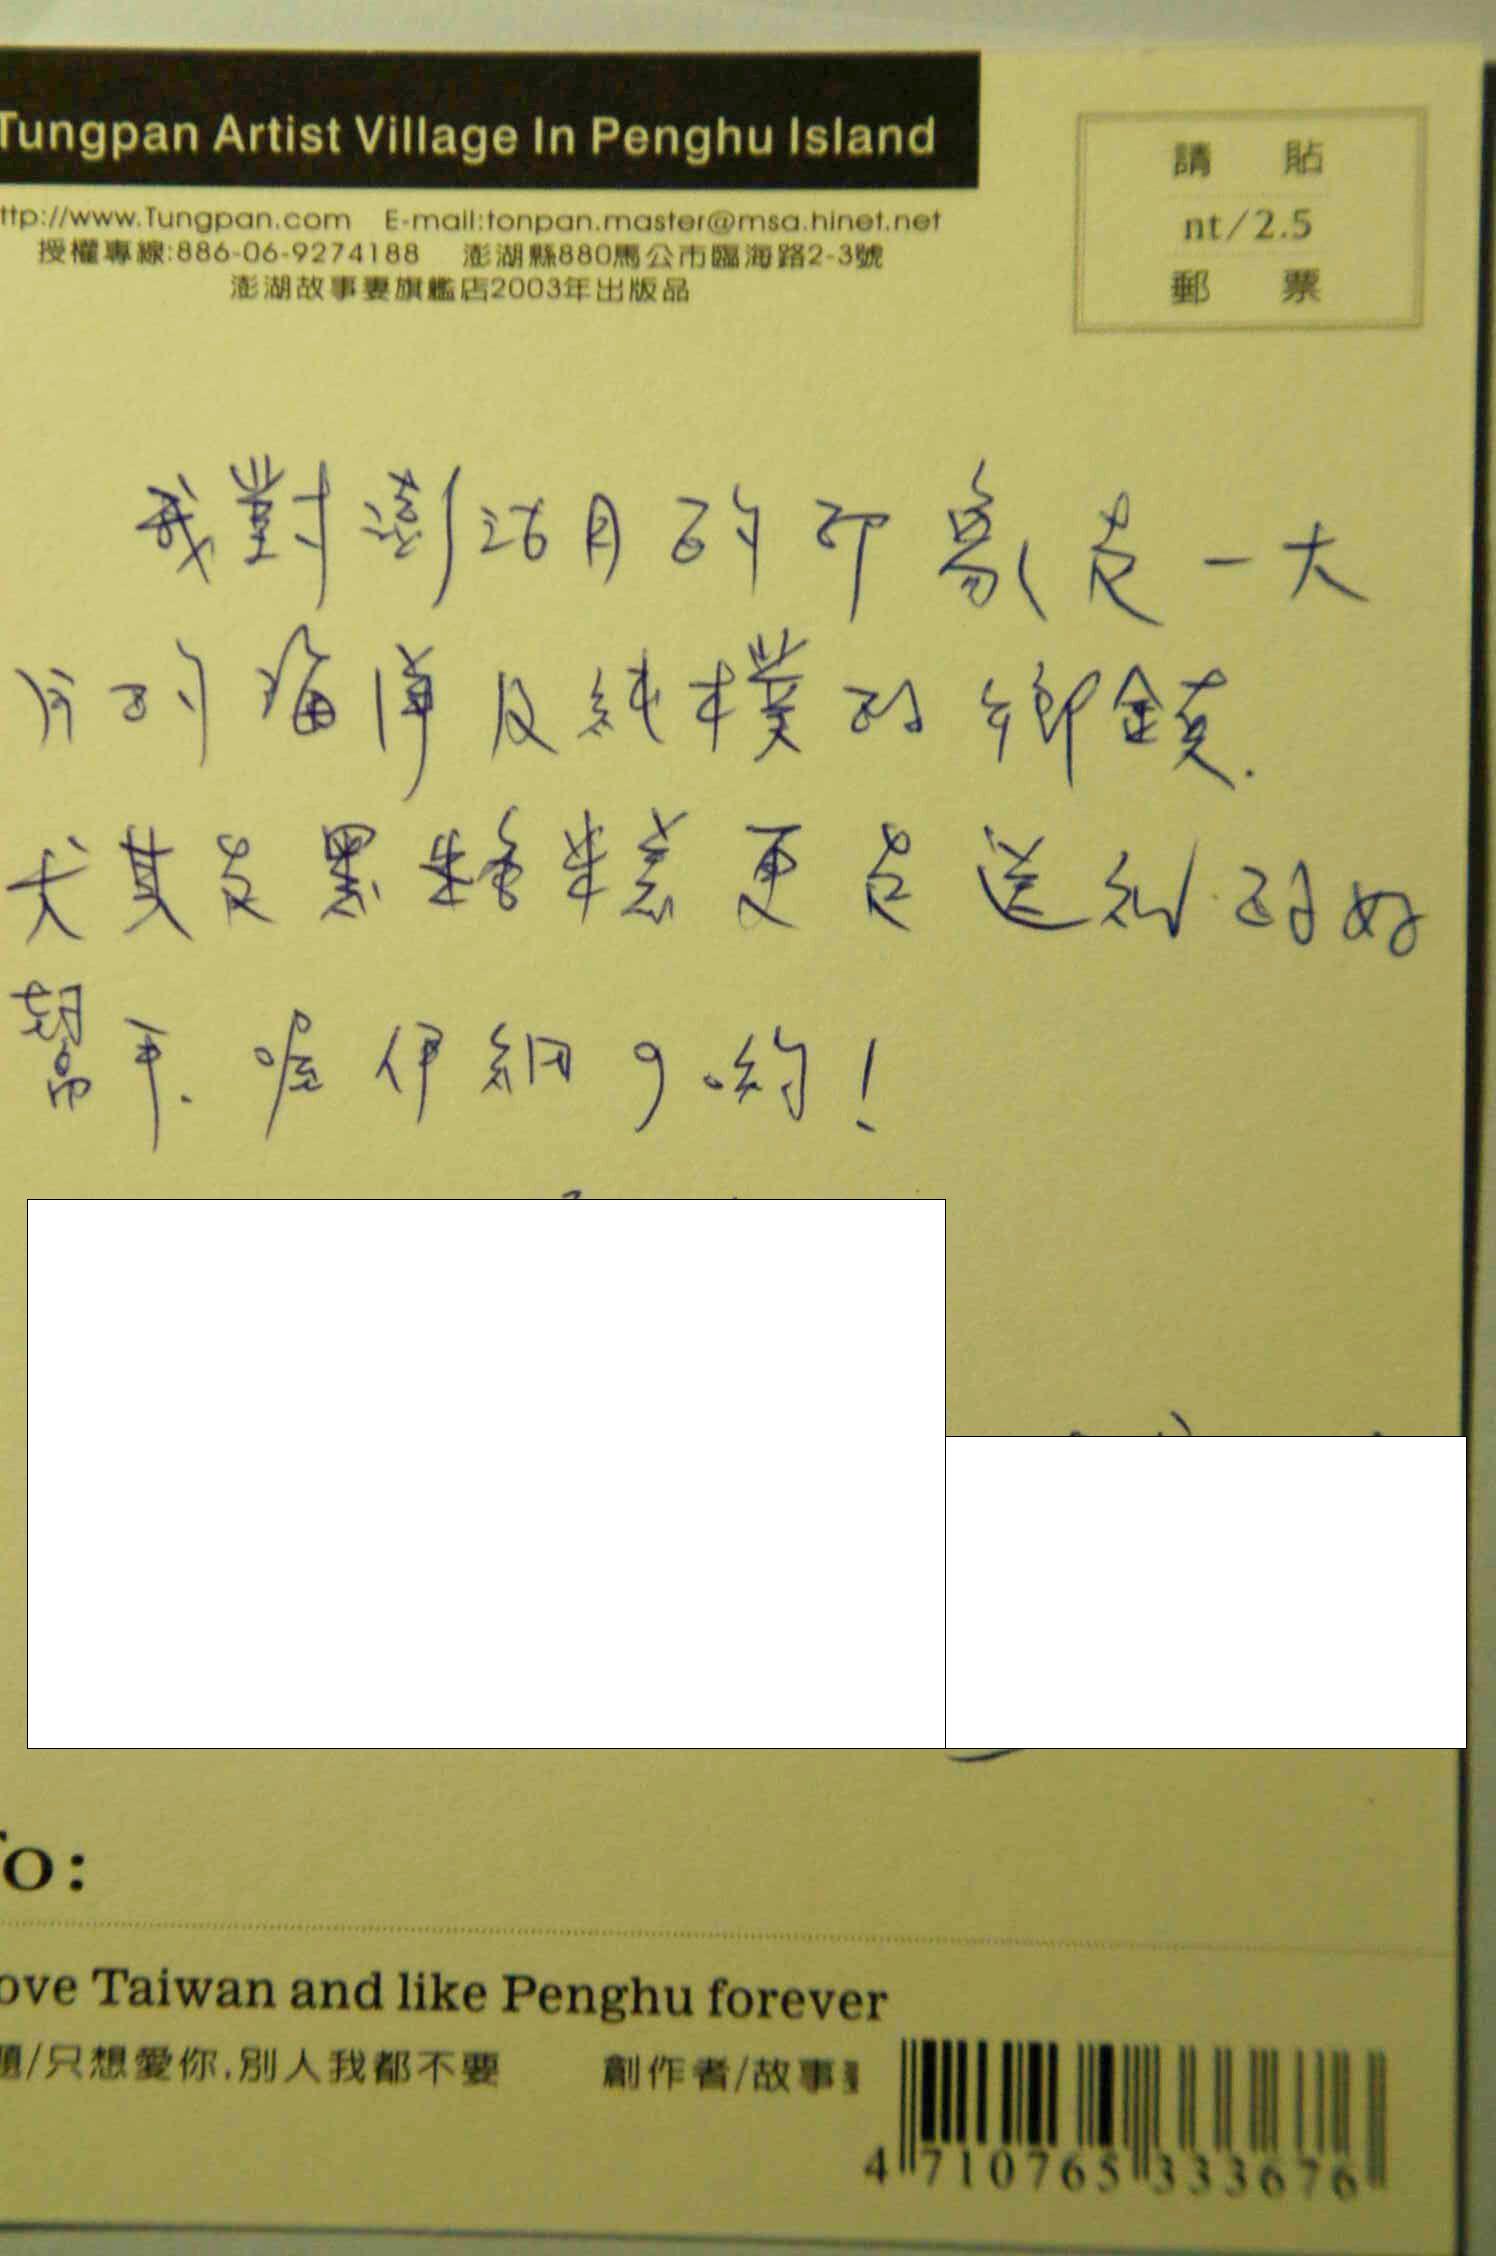 Tungpan Artist Village In Penghu Island
ttp://www.Tungpan.com E-mail:tonpan.master@msa.hinet.net
授權專線:886-06-9274188 澎湖縣880馬公市臨海路2-3號
澎湖故事妻旗艦店2003年出版品
請 貼
nt/2.5
郵 票
我對澎湖的印象是一大
片的海洋及純樸的鄉鎮.
尤其是黑糖糕更是送禮的好
幫手.
To:
ove Taiwan and like Penghu forever
題/只想愛你,別人我都不要 創作者/故事妻
4 710765 333676